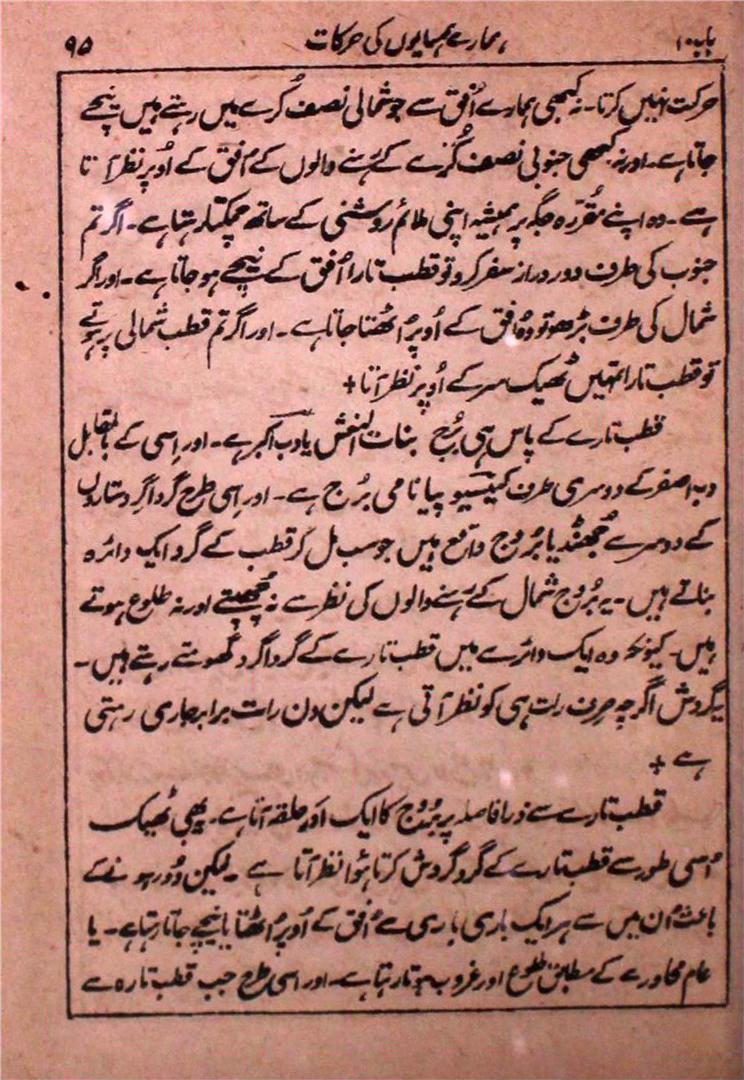 باب ۱۰ ہمارے ہمسایوں کی حرکات ۹۵
حرکت نہیں کرتا۔ نہ کبھی ہمارے اُفق سے جو شمالی نصف کُرے میں رہتے ہیں نیچے
جاتا ہے۔ اور نہ کبھی جنوبی نصف کُرے کے رہنے والوں کے اُفق کے اُوپر نظر آتا
ہے۔ وہ اپنے مُقرّرہ جگہ پر ہمیشہ اپنی ملائم روشنی کے ساتھ چمکتا رہتا ہے۔ اگر تم
جنوب کی طرف دور دراز سفر کرو تو قطب تارا اُفق کے نیچے ہو جاتا ہے۔ اور اگر
شمال کی طرف بڑھو تو وہ اُفق کے اُوپر اُٹھتا جاتا ہے۔ اور اگر تم قطب شمالی پر ہوتے
تو قطب تارا تمہیں ٹھیک سر کے اُوپر نظر آتا +
قطب تارے کے پاس ہی بُرج بنات النعش یا دب اکبر ہے۔ اور اِسی کے بالمقابل
دب اصغر کے دوسری طرف کیسیو پیا نامی بُرج ہے۔ اور اِسی طرح گرداگرد ستاروں
کے دوسرے جُھنڈ یا بُروج واقع ہیں جو سب مل کر قطب کے گرد ایک دائرہ
بناتے ہیں۔ یہ بُروج شمال کے رہنے والوں کی نظر سے نہ چُھپتے اور نہ طلوع ہوتے
ہیں۔ کیونکہ وہ ایک دائرے میں قطب تارے کے گرداگرد گھومتے رہتے ہیں۔
یہ گردش اگرچہ صرف رات ہی کو نظر آتی ہے لیکن دن رات برابر جاری رہتی
ہے +
قطب تارے سے ذرا فاصلہ پر بُروج کا ایک اَور حلقہ آتا ہے۔ یہ بھی ٹھیک
اُسی طور سے قطب تارے کے گرد گردش کرتا ہُوا نظر آتا ہے۔ لیکن دُور ہونے کے
باعث اُن میں سے ہر ایک باری باری سے اُفق کے اُوپر اُٹھتا یا نیچے جاتا رہتا ہے۔ یا
عام محاورے کے مطابق طلوع اور غروب ہوتا رہتا ہے۔ اور اسی طرح جب قطب تارہ سے